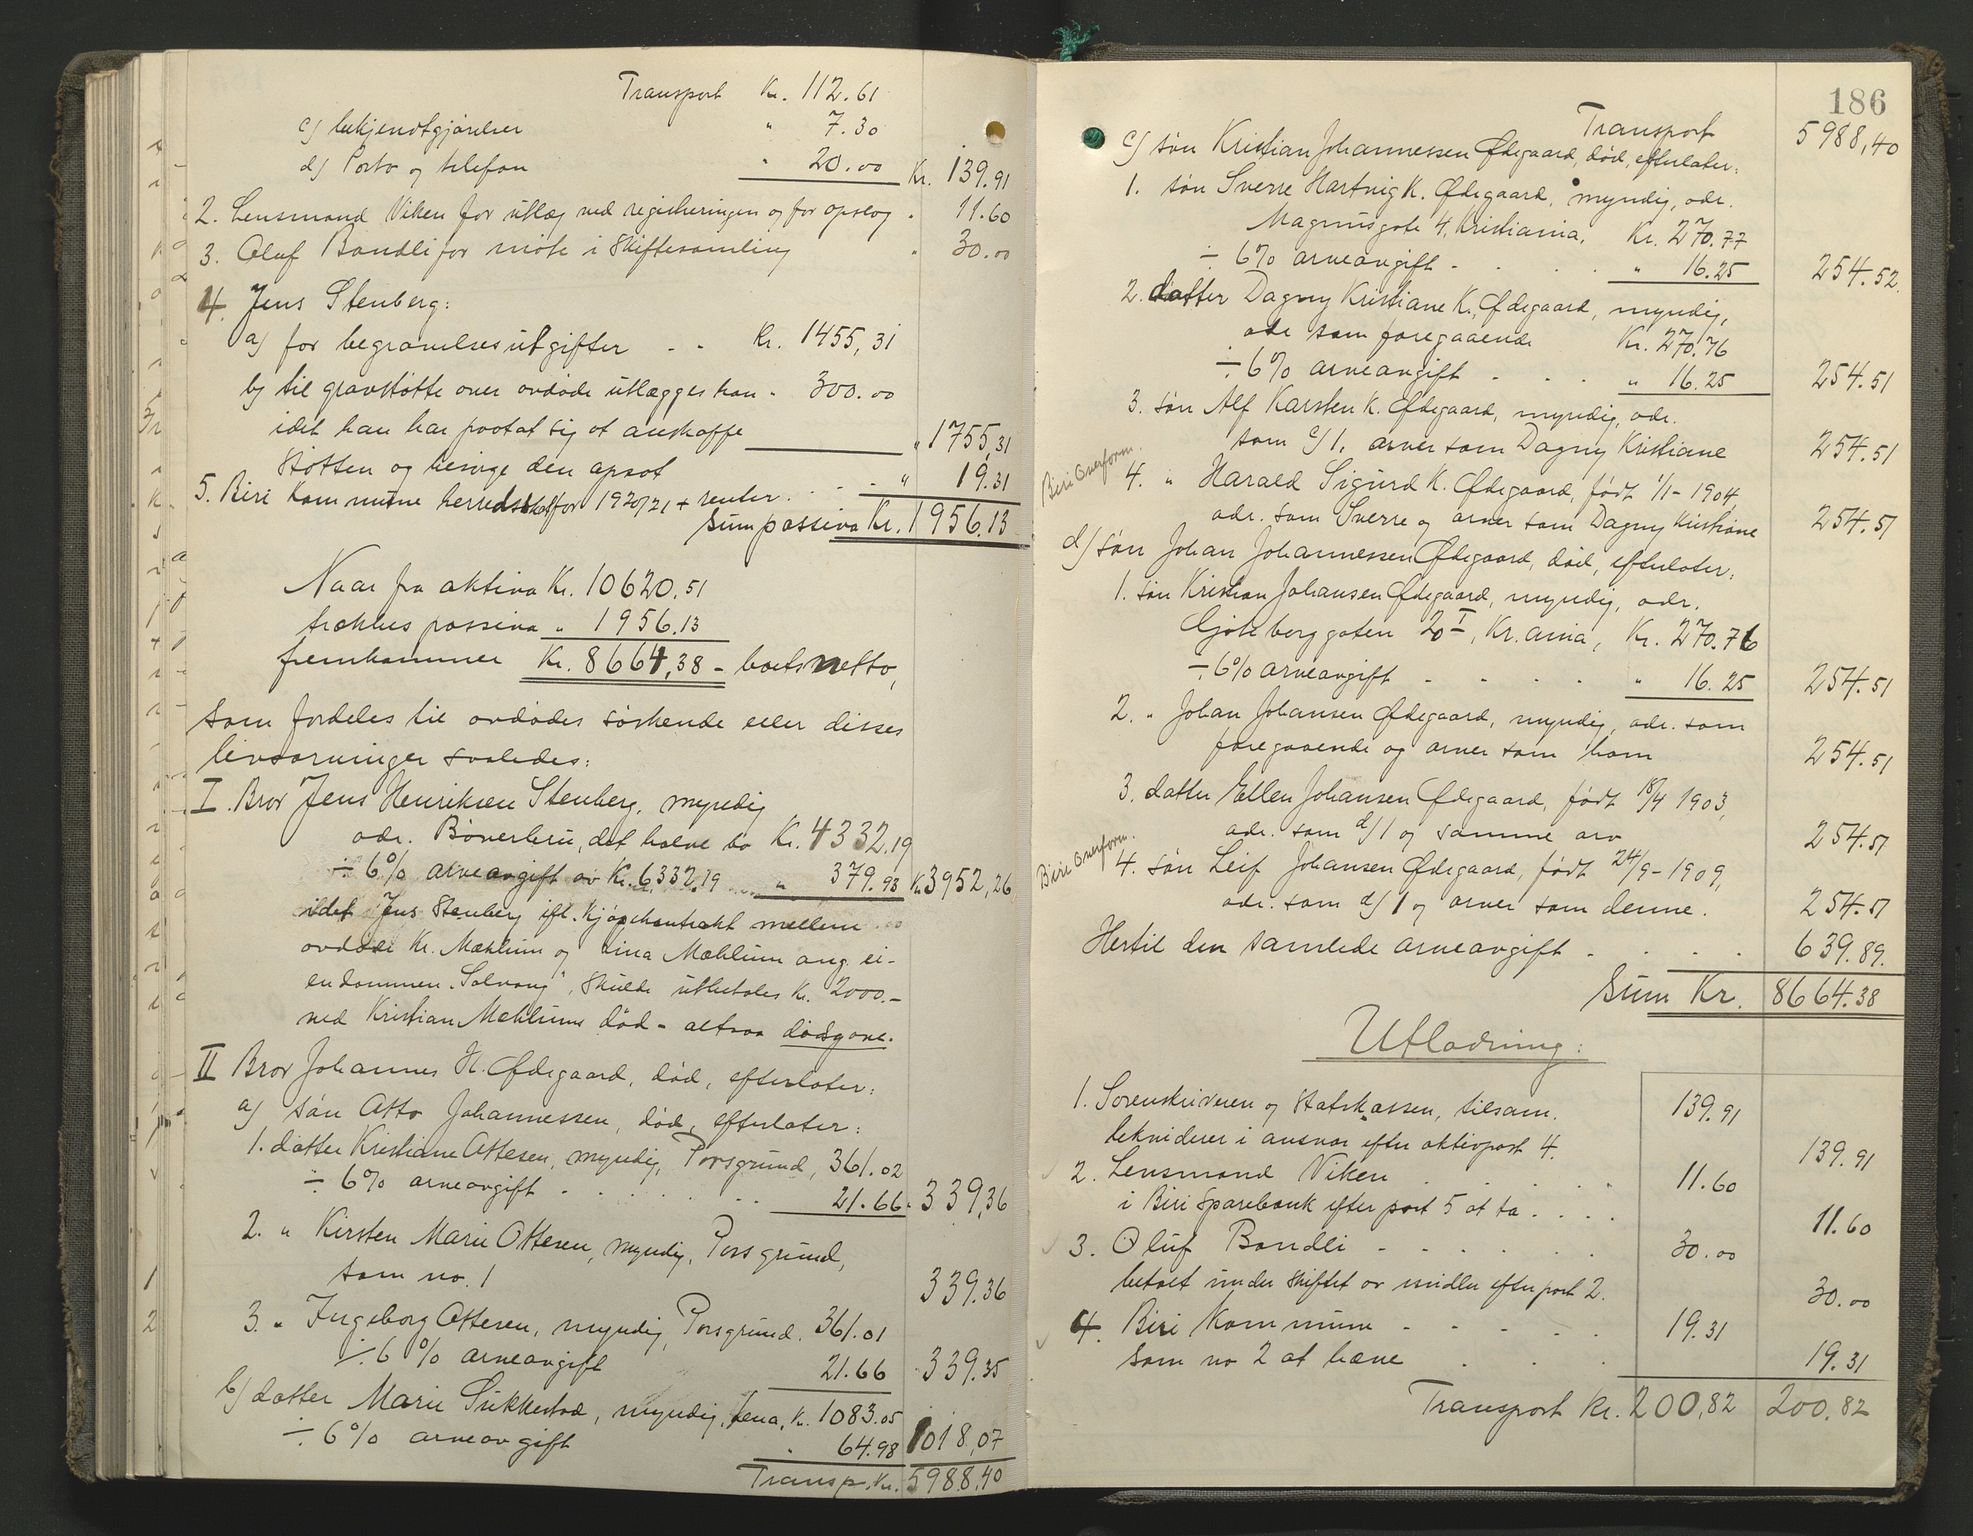 Transport Kr. 112.61
c) bekjendtgjørelser " 7.30
d) Porto og telefon " 20.00 Kr. 139.91
2. Lensmand Viken for utlæg ved registreringen og for opslag " 11.60
3. Oluf Bondli for møte i skiftesamling " 30.00
4. Jens Stenberg:
a) for begravelsesutgifter - - Kr. 1455,31
b) til gravstøtte over avdøde utlægges han " 300.00
idet han har paatat sig at anskaffe " 1755,31
støtten og besørge den opsat
5. Biri Kommune herredsskat for 1920/21 + renter . . . " 19.31
Sum passiva Kr. 1956.13
Naar fra aktiva Kr. 10620.51
trækkes passiva " 1956.13
fremkommer Kr. 8664,38 - boets netto,
som fordeles til avdødes søskende eller disses
livsarvinger saaledes:
I. Bror Jens Henriksen Stenberg, myndig
adr. Bøverbru, det halve bo Kr. 4332.19
÷ 6% arveavgift av Kr. 6332.19 " 379.93 Kr. 3952,26
idet Jens Stenberg ifl. kjøpekontrakt mellem
avdøde Kr. Mæhlum og Lina Mæhlum ang. ei-
endommen "Solvang", skulde utbetales Kr. 2000.-
ved Kristian Mæhlums død - altsaa dødsgave.
II Bror Johannes H. Ødegaard, død, efterlater:
a) søn Otto Johannessen, død, efterlater:
1. datter Kristiane Ottesen, myndig, Porsgrund, 361.02
÷ 6% arveavgift . . . . . 21.66 " 339,36
2. " Kirsten Marie Ottesen, myndig, Porsgrund,
som no. 1 339.36
3. " Ingeborg Ottesen, myndig, Porsgrund. 361.01
÷ 6% arveavgift 21.66 " 339.35
b) datter Marie Sukkestad, myndig, Kr. 1083.05
÷ 6% arveavgift " 64.98 1018,07
Transp. Kr. 5988,40
186
Transport 5988,40
c) søn Kristian Johannessen Ødegaard, død, efterlater:
1. søn Sverre Hartvig K. Ødegaard, myndig, adr.
Magnusgate 4, Kristiania, Kr. 270.77
÷ 6% arveavgift . . . " 16.25 254.52
2. datter Dagny Kristiane K. Ødegaard, myndig,
adr som foregaaende Kr. 270.76
÷ 6% arveavgift . . . " 16.25 254.51
3. søn Alf Karsten K. Ødegaard, myndig, adr.
som c/1, arver som Dagny Kristiane 254.51
Biri Overform.
4. " Harald Sigurd K. Ødegaard, født 1/1 - 1904
adr. som Sverre og arver som Dagny Kristiane 254.51
d) søn Johan Johannessen Ødegaard, død, efterlater:
1. søn Kristian Johansen Ødegaard, myndig, adr.
Gøteborggaten 20 I, Kr.ania, Kr. 270.76
÷ 6% arveavgift . . . " 16.25 254.51
2. " Johan Johansen Ødegaard, myndig, adr. som
foregaaende og arver som ham 254.51
3. datter Ellen Johansen Ødegaard, født 18/4 1903,
adr. som d/1 og samme arv 254.51
Biri Overform.
4. søn Leif Johansen Ødegaard, født 24/9 - 1909,
adr. som d/1 og arver som denne. 254.51
Hertil den samlede arveavgift . . . . 639.89.
Sum Kr. 8664.38
Utlodning:
1. Sorenskriveren og Statskassen, tilsam. 139.91
lekviderer i ansvar efter aktivpost 4. 139.91
2. Lensmand Viken . . . . 11.60
i Biri Sparebank efter post 5 at ta . . . . 11.60
3. Oluf Bondli - - - - 30.00
betalt under skiftet av midler efter post 2. 30.00
4. Biri Kommune - - - - 19.31
som no 2 at hæve . . . 19.31
Transport Kr. 200,82 200.82